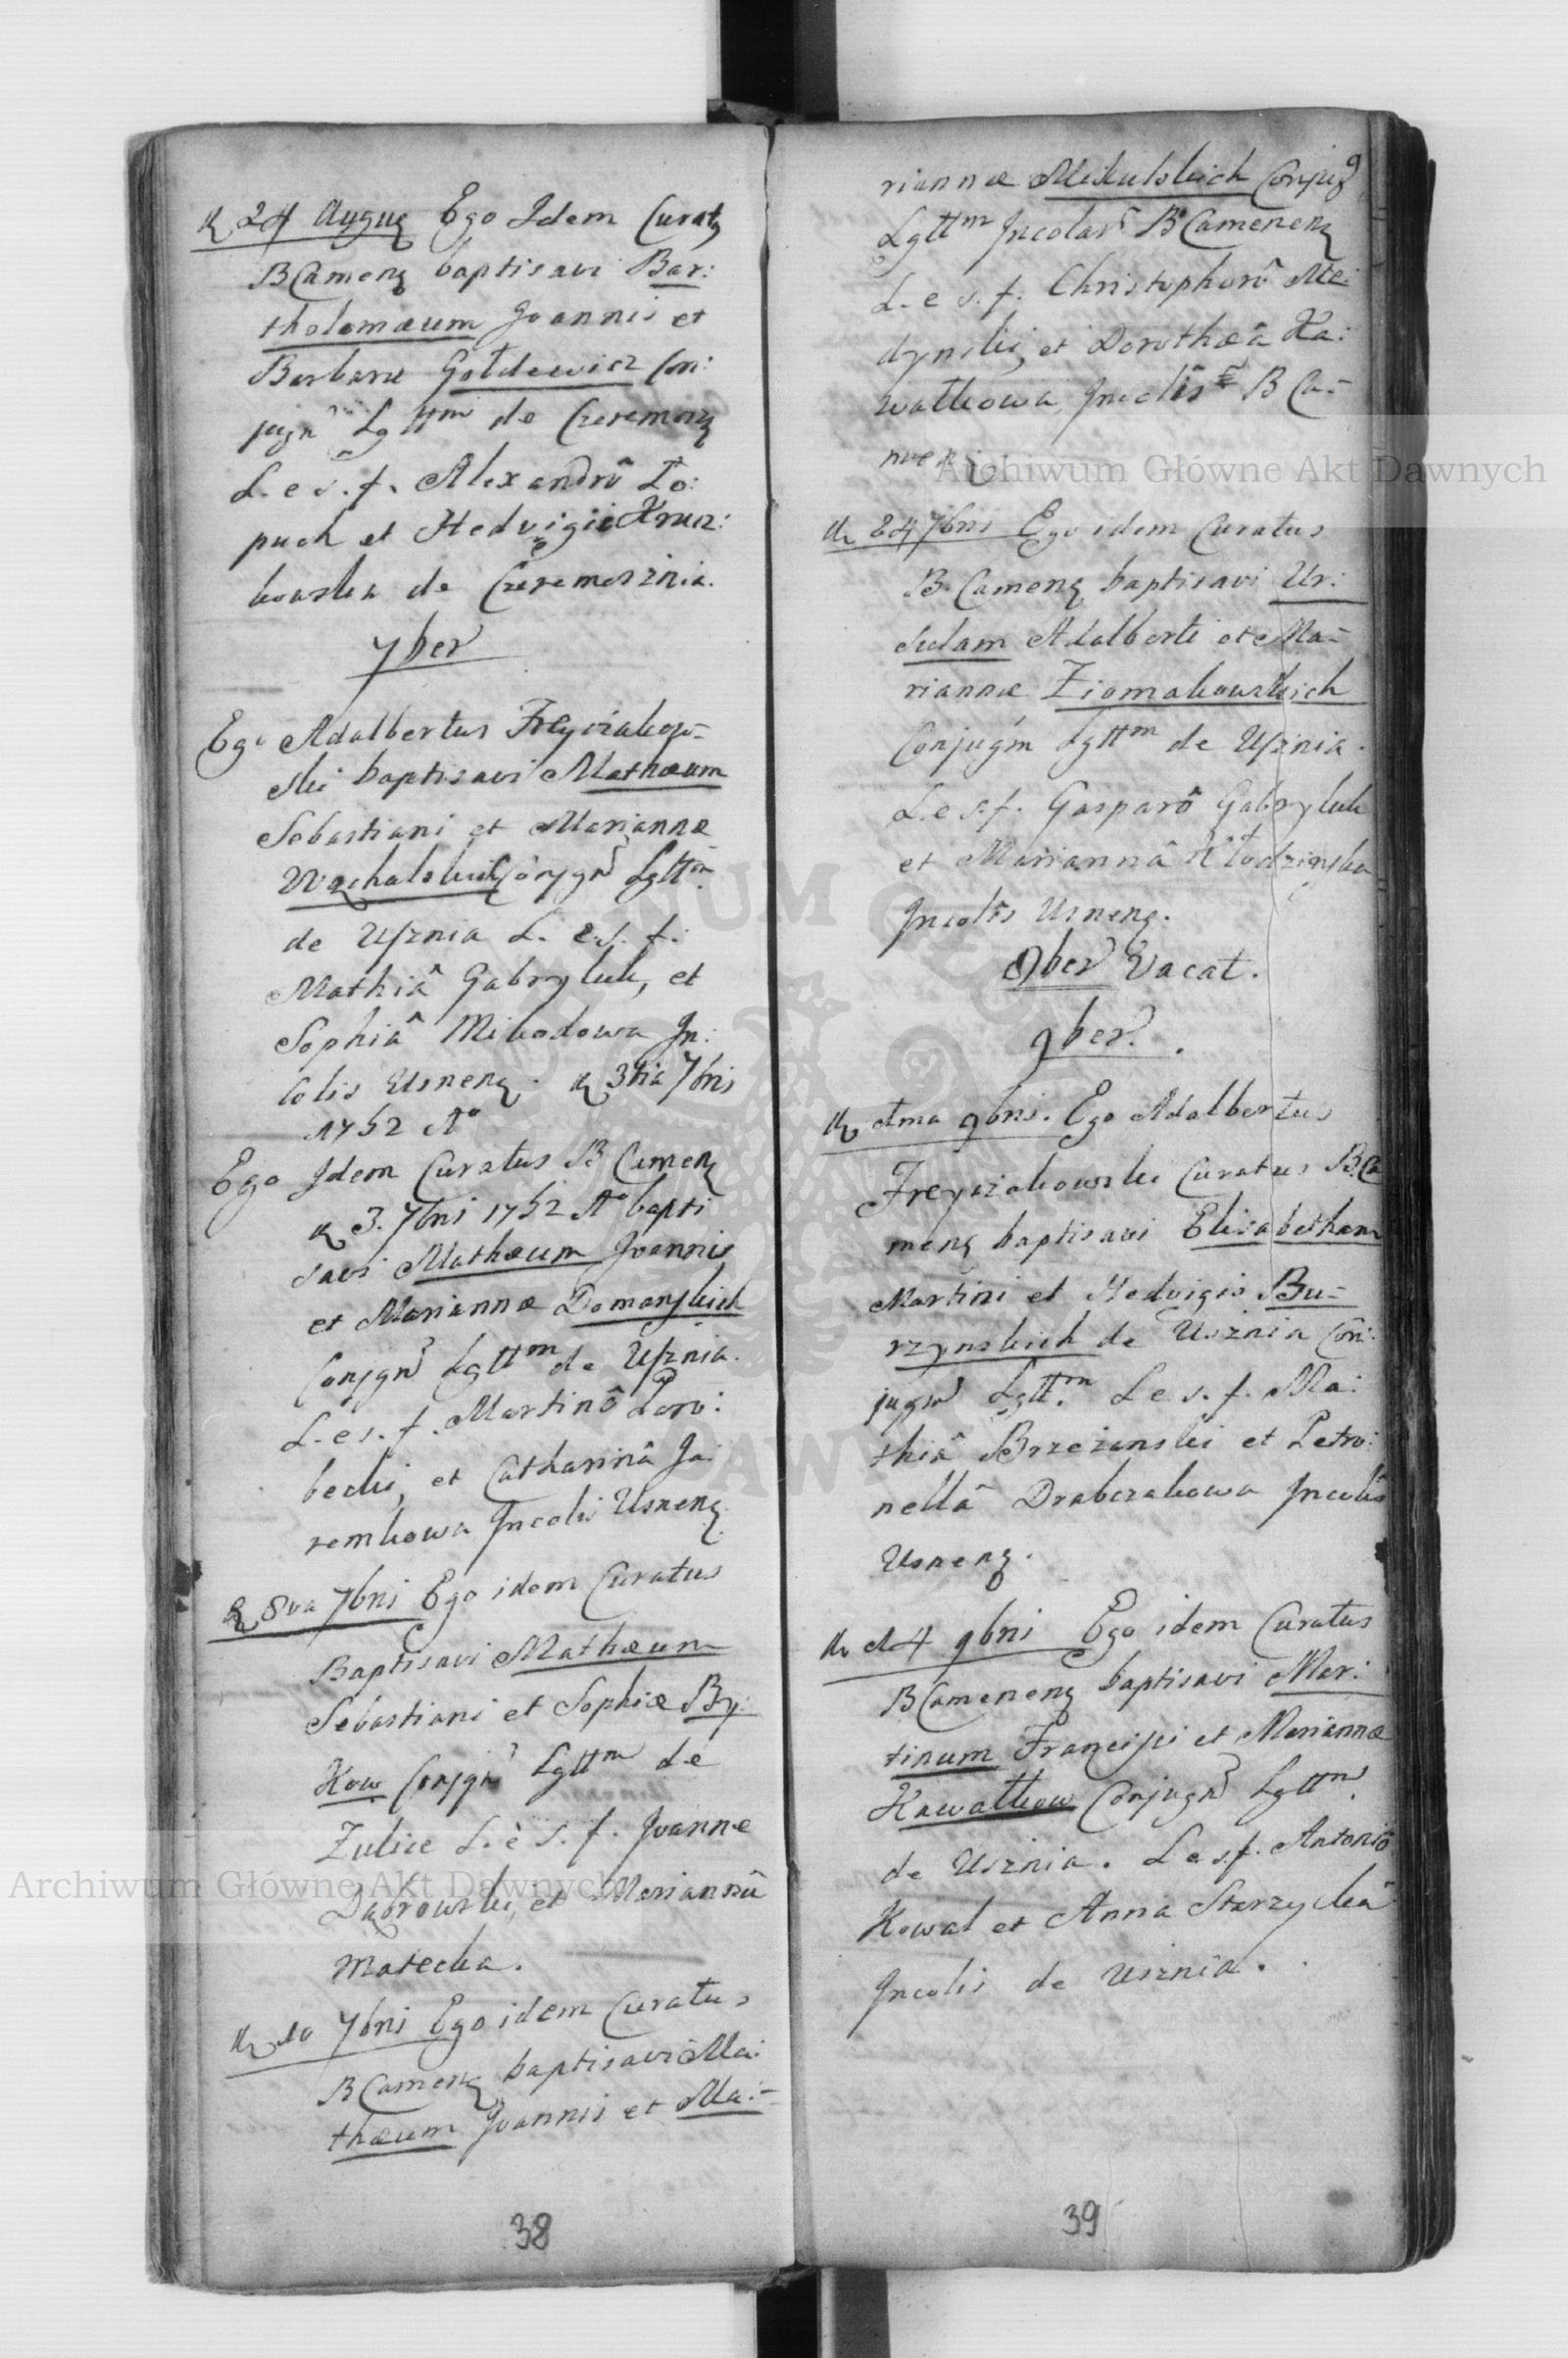 24 Augus Ego Idem Curatus
B Camens baptisavi Bar:
tholomæum Joannis et
Barbaræ Gołdewicz Con:
jugu Lgttm de Czeremosz
L. e s. f. Alexandrô Ło:
puch et Hedvigis Krucz:
kowska de Czeremosznia.
7ber
Ego Adalbertus Freyziakow-
ski baptisavi Mathæum
Sebastiani et Mariannæ
Wąchalskich Conjgu Lgttm
de Usznia L. e. s. f.
Mathiâ Gabryluk, et
Sophiâ Mikodowa In:
colis Usnens. 3tia 7bris
1752 Ao
Ego Idem Curatus B Camens
3. 7bris 1752 Ao bapti
savi Mathæum Joannis
et Mariannæ Domanskich
Conjgu Lgttm de Usznia.
L. e s. f. Martinô Poro:
becki, et Catharinâ Ja:
rembowa Incolis Usnens
8va 7bris Ego idem Curatus
Baptisavi Mathæum
Sebastiani et Sophiæ By:
Kow Conjgu Lgttm de
Zulice L. e s. f. Joanne
Dąbrowski, et Mariannâ
Matecka.
10 7bris Ego idem Curatus
B Camens baptisavi Ma:
thæum Joannis et Ma:
38
9
riannæ Mikulskich Conjug
Lgttm Incolar B Camenens
L. e s. f. Christophorô Me:
dynski, et Dorotheâ Ka:
wałkowa, Incolis B Ca-
mens
24 7bris Ego idem Curatus
B. Camens baptisavi Ur:
sulam Adalberti et Ma-
riannæ Ziomakowskich
Conjugm Lgttm de Usznia.
L. e s. f. Gasparô Gabryluk
et Mariannâ Kłodzinska
Incolis Usnens.
8ber Vacat.
9ber.
1ma 9bris. Ego Adalbertus
Freyziakowski Curatus B. Ca
mens baptisavi Elisabetham
Martini et Hedvigis Bu-
rzynskich de Usznia Con:
jugu Lgttm. L e s. f. Ma:
thiâ Brzezanski et Petro:
nellâ Drabczakowa Incolis
Usnens.
14 9bris Ego idem Curatus
B Camenens baptisavi Mar:
tinum Francisci et Mariannæ
Kawałkow Conjugu Lgttm.
de Usznia. L. e s. f. Antoniô
Kowal et Anna Starzyckâ
Incolis de Usznia.
39
Archiwum Główne Akt Dawnych
Archiwum Główne Akt Dawnych